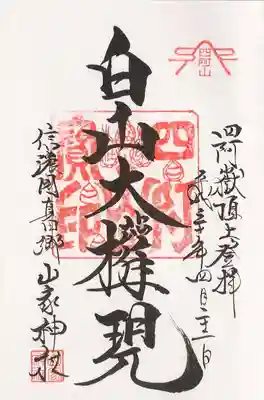 四阿山
四阿嶽頂上登拝
平成三十年四月二十一日
白山大權現
信濃国真田郷 山家神社